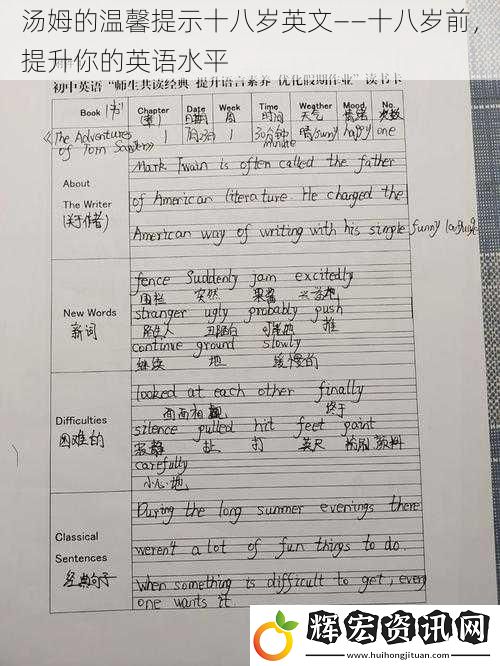 汤姆的温馨提示十八岁英文——十八岁前，
提升你的英语水平
初中英语“师生共读经典 提升语言素养 优化假期作业”读书卡
Book (书) Chapter (章) Date 日期 Week 周 Time 时间 Weather 天气 Mood 情绪 No. 次数
《The Adventures of Tom Sawyer》 1 1 30分钟 minute 晴sunny happy one
About The Writer (关于作者)
Mark Twain is often called the father
of American literature. He changed the
American way of writing with his simple funny language
New Words 新词
fence Suddenly jam excitedly
围栏 突然 果酱 兴奋地
stranger ugly probably push
陌生人 丑陋的 可能地 推
continue ground slowly
继续 地 缓慢的
Difficulties 困难的
looked at each other finally
面面相觑 终于
silence pulled hit feet paint
寂静 扯 打 英尺 颜料
carefully
小心地
Classical Sentences 经典句子
During the long summer evenings there
weren't a lot of fun things to do.
when something is difficult to get, every
one wants it.
辉宏资讯网
www.huihongjituan.com